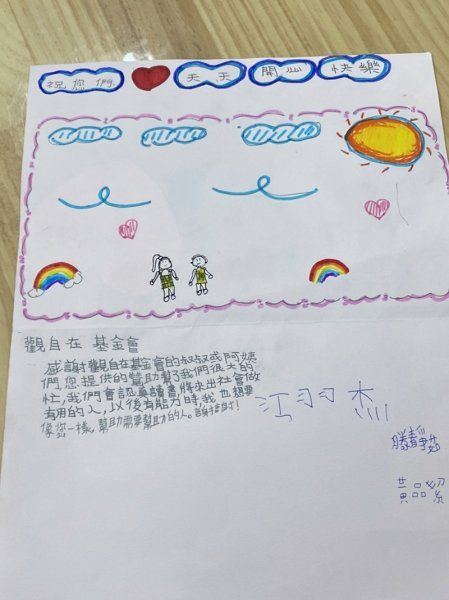 祝您們 天天 開心 快樂
觀自在 基金會
感謝觀自在基金會的叔叔或阿姨
們,您提供的幫助幫了我們很大的
忙,我們會認真讀書,將來出社會做
有用的人,以後有能力時,我也想要
像您一樣,幫助需要幫助的人。謝謝!